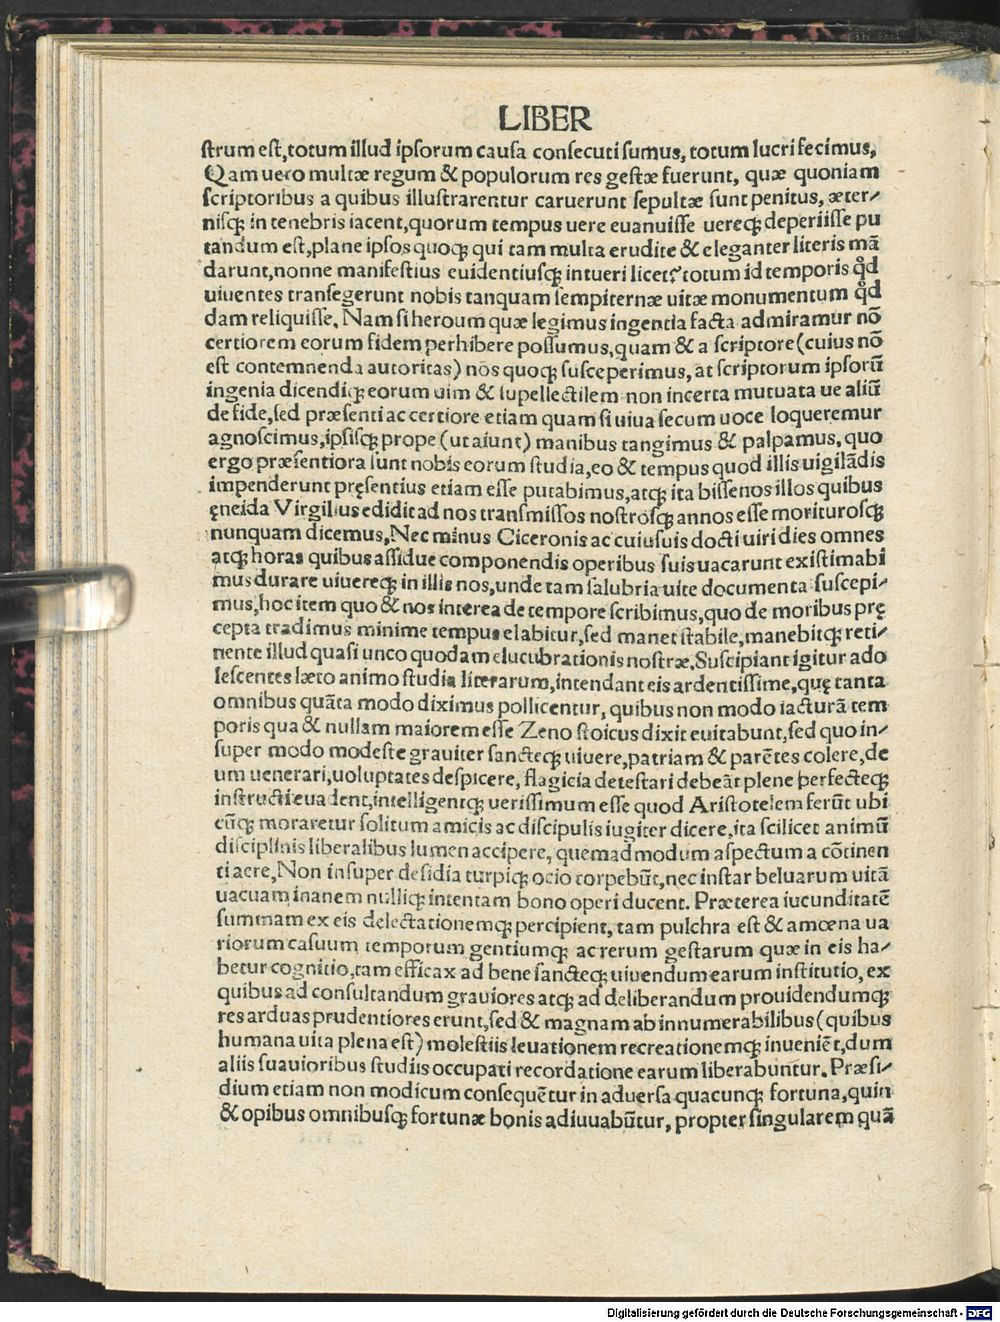 LIBER
strum est, totum illud ipsorum causa consecuti sumus, totum lucri fecimus,
Qam uero multæ regum & populorum res gestæ fuerunt, quæ quoniam
scriptoribus a quibus illustrarentur caruerunt sepultæ sunt penitus, æter-
nisq; in tenebris iacent, quorum tempus uere euanuisse uereq; deperiisse pu
tandum est, plane ipsos quoq; qui tam multa erudite & eleganter literis mā
darunt, nonne manifestius euidentiusq; intueri licet? totum id temporis qd̊
uiuentes transegerunt nobis tanquam sempiternæ uitæ monumentum qd̊
dam reliquisse. Nam si heroum quæ legimus ingentia facta admiramur nō
certiorem eorum fidem perhibere possumus, quam & a scriptore (cuius nō
est contemnenda autoritas) nos quoq; susceperimus, at scriptorum ipsorū
ingenia dicendiq; eorum uim & supellectilem non incerta mutuata ue aliū
de fide, sed præsenti ac certiore etiam quam si uiua secum uoce loqueremur
agnoscimus, ipsisq; prope (ut aiunt) manibus tangimus & palpamus, quo
ergo præsentiora sunt nobis eorum studia, eo & tempus quod illis uigilādis
impenderunt pręsentius etiam esse putabimus, atq; ita bissenos illos quibus
ęneida Virgilius edidit ad nos transmissos nostrosq; annos esse moriturosq;
nunquam dicemus, Nec minus Ciceronis ac cuiusuis docti uiri dies omnes
atq; horas quibus assidue componendis operibus suis uacarunt existimabi
mus durare uiuereq; in illis nos, unde tam salubria uite documenta suscepi-
mus, hoc item quo & nos interea de tempore scribimus, quo de moribus prę
cepta tradimus minime tempus elabitur, sed manet stabile, manebitq; reti-
nente illud quasi unco quodam elucubrationis nostræ. Suscipiant igitur ado
lescentes læto animo studia literarum, intendant eis ardentissime, quę tanta
omnibus quāta modo diximus pollicentur, quibus non modo iacturā tem
poris qua & nullam maiorem esse Zeno stoicus dixit euitabunt, sed quo in-
super modo modeste grauiter sancteq; uiuere, patriam & parētes colere, de
um uenerari, uoluptates despicere, flagicia detestari debeāt plene perfecteq;
instructi euadent, intelligentq; uerissimum esse quod Aristotelem ferūt ubi
cūq; moraretur solitum amicis ac discipulis iugiter dicere, ita scilicet animū
disciplinis liberalibus lumen accipere, quemadmodum aspectum a cōtinen
ti aere, Non insuper desidia turpiq; ocio torpebūt, nec instar beluarum uitā
uacuam inanem nulliq; intentam bono operi ducent. Præterea iucunditatē
summam ex eis delectationemq; percipient, tam pulchra est & amœna ua
riorum casuum temporum gentiumq; ac rerum gestarum quæ in eis ha-
betur cognitio, tam efficax ad bene sancteq; uiuendum earum institutio, ex
quibus ad consultandum grauiores atq; ad deliberandum prouidendumq;
res arduas prudentiores erunt, sed & magnam ab innumerabilibus (quibus
humana uita plena est) molestiis leuationem recreationemq; inueniēt, dum
aliis suauioribus studiis occupati recordatione earum liberabuntur. Præsi-
dium etiam non modicum consequētur in aduersa quacunq; fortuna, quin
& opibus omnibusq; fortunæ bonis adiuuabūtur, propter singularem quā
Digitalisierung gefördert durch die Deutsche Forschungsgemeinschaft - DFG